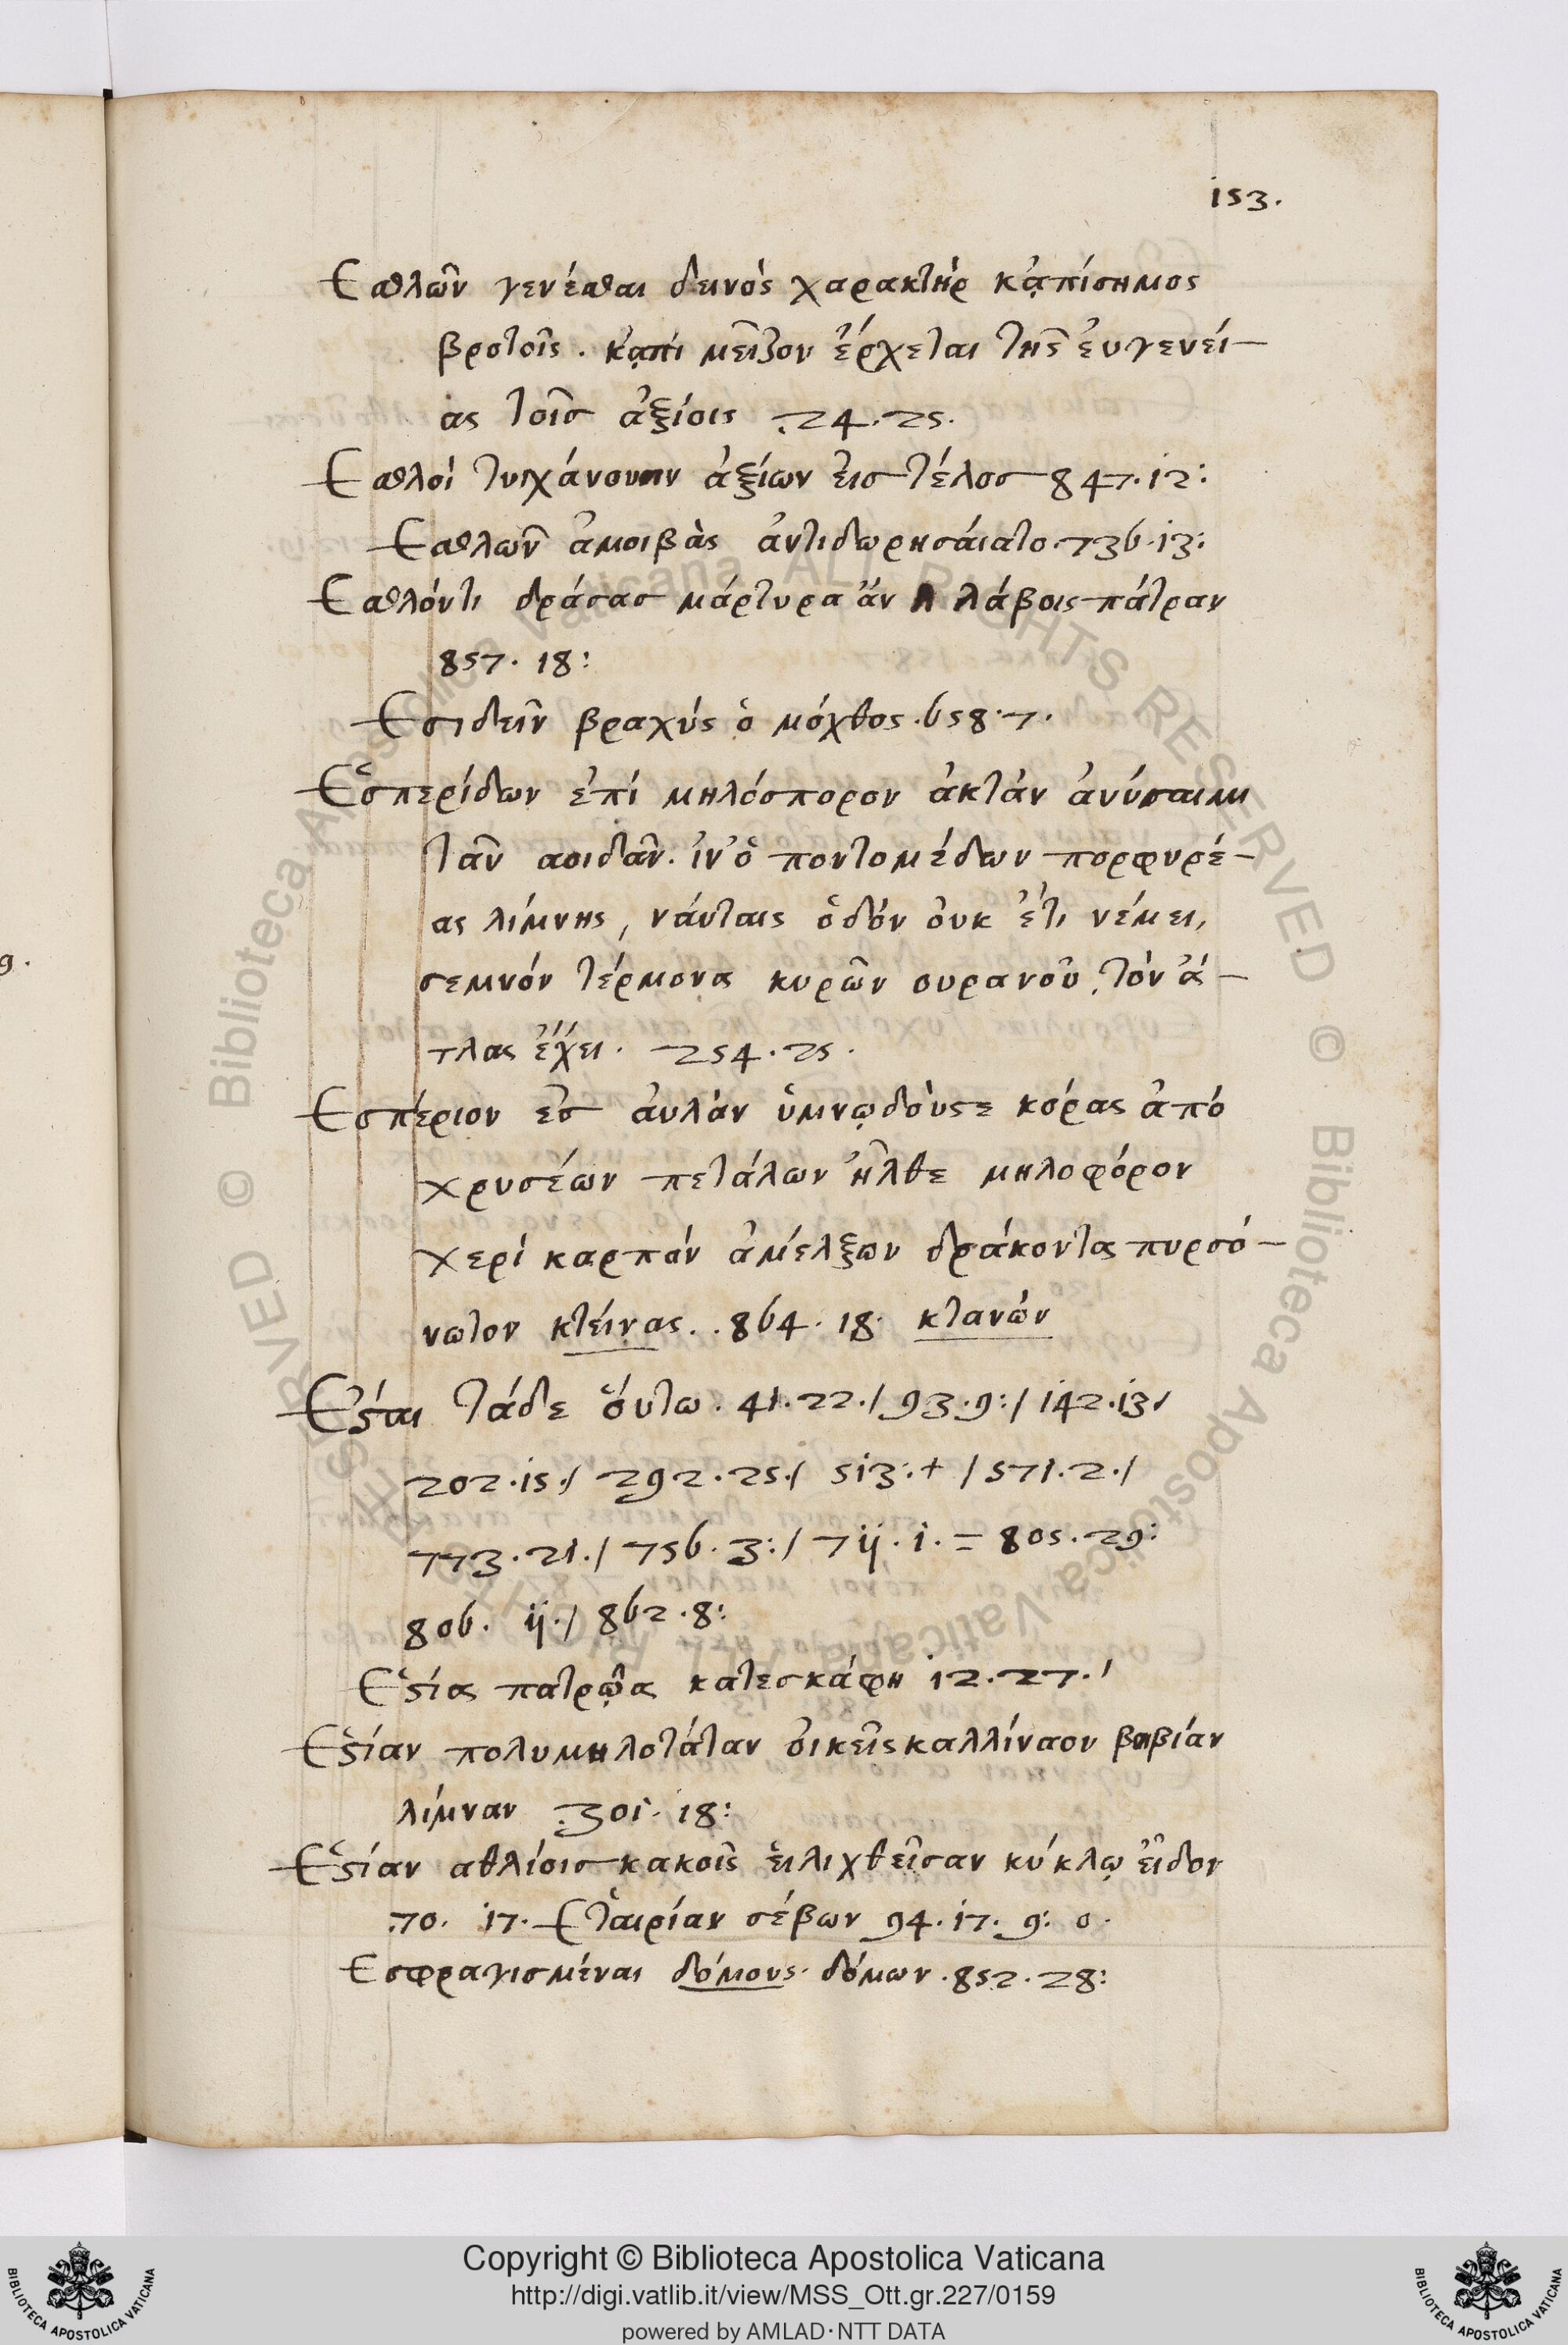 153.
Εσθλῶν γενέσθαι δεινὸς χαρακτὴρ κᾀπίσημος
βροτοῖς . κᾀπὶ μεῖζον ἔρχεται τῆς ἐυγενεί-
ας τοῖσ ἀξίοις .24.25.
Εσθλοὶ τυγχάνουσιν ἀξίων εἰσ τέλοσ 847.12:
Εσθλῶν ἀμοιβὰς ἀντιδωρησάιατο.736.13:
Εσθλόντι δράσασ μάρτυρα ἄν λάβοις πάτραν
857. 18:
Εσιδεῖν βραχύς ὁ μόχθος .658.7.
Εὁσπερίδων ἐπί μηλόσπορον ἀκτάν ἀνύσαιμι
τᾶν αοιδᾶν. ἱν' ὁ ποντομέδων πορφυρέ-
ας λίμνης, νάυταις ὁδόν ὀυκ ἔτι νέμει,
σεμνόν τέρμονα κυρῶν ουρανοῦ, τόν ἄ-
τλας ἔχει. 254.25.
Εσπέριον ἐσ ἀυλὰν ὑμνῳδὸυσε κόρας ἀπό
χρυσέων πετάλων ἦλθε μηλοφόρον
χερί καρπόν ἀμέλξων δράκοντας πυρσό-
νωτον κτείνας..864.18. κτανών
Εσται τάδε ὅυτω . 41.22./93.9:/142.13/
202.15./ 292.25./ 513.+ /571.2./
773.21./ 756.3:/ 711.1.= 805.29:
806. 11./862.8:
Εστίας πατρῷας κατεσκάφη 12.27./
Εστίαν πολυμηλοτάταν ὀικεῖς καλλίναον βοιβίαν
λίμναν .301.18:
Εστίαν αθλίοισ κακοῖς ἑιλιχθεῖσαν κύκλῳ ἐῖδον
.70. 17. Εταιρίαν σέβων 94.17. 9: 0.
Εσφραγισμέναι δόμους. δόμων .852.28:
9.
Copyright © Biblioteca Apostolica Vaticana
http://digi.vatlib.it/view/MSS_Ott.gr.227/0159
powered by AMLAD·NTT DATA
BIBLIOTECA APOSTOLICA VATICANA
BIBLIOTECA APOSTOLICA VATICANA
© Biblioteca Apostolica Vaticana ALL RIGHTS RESERVED © Biblioteca Apostolica Vaticana ALL RIGHTS RESERVED